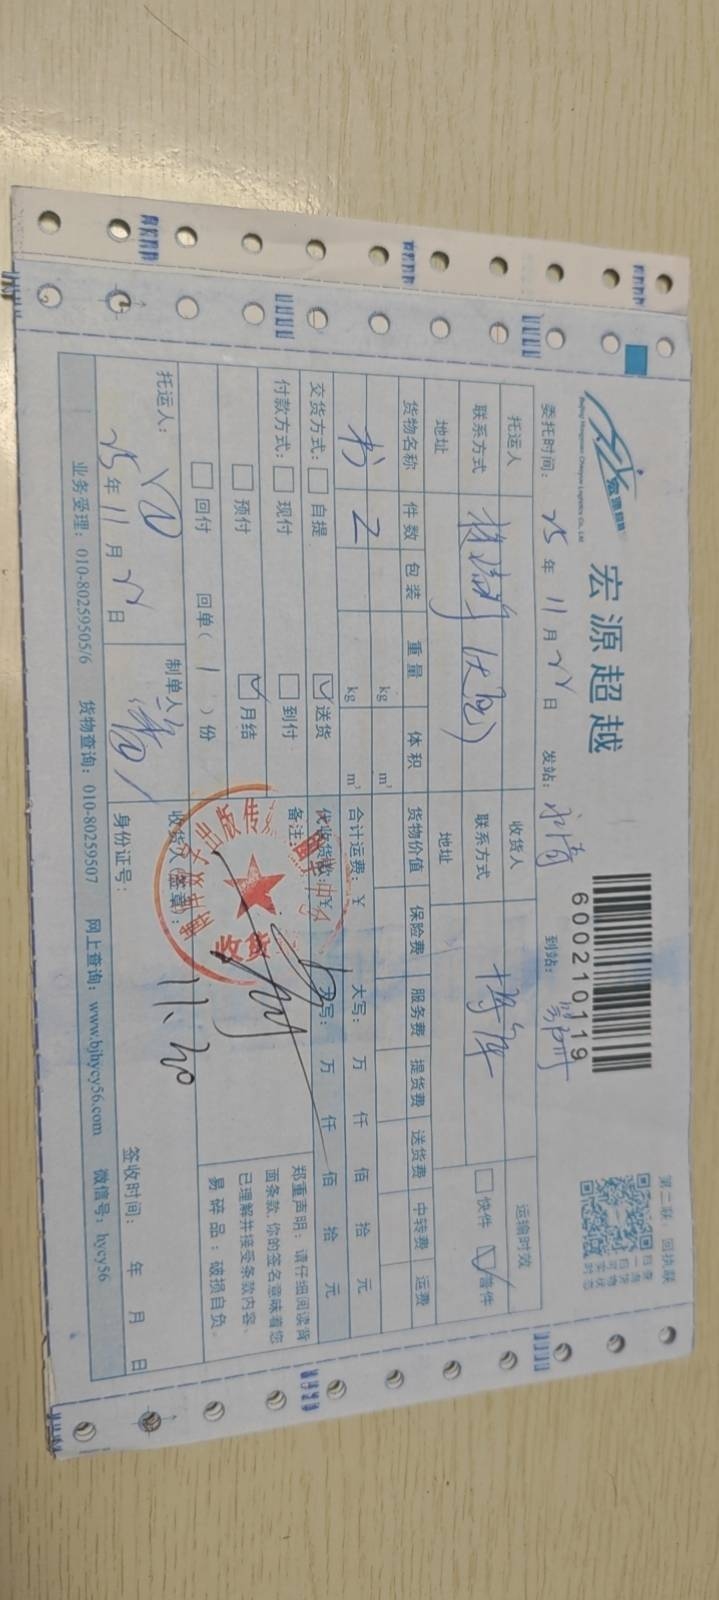 宏源超越
宏源超越
Beijing Hongyuan Chaoyue Logistics Co., Ltd
600210119
第二联：回执联
委托时间：25年11月22日 发站： 到站：
托运人 收货人 运输时效
联系方式 联系方式 博库 快件 普件
地址 地址
货物名称 件数 包装 重量 体积 货物价值 保险费 服务费 提货费 送货费 中转费 运费
kg m³
书 2 kg m³ 合计运费：¥ 大写： 万 仟 佰 拾 元
交货方式： 自提 送货 代收货款：¥ 大写： 万 仟 佰 拾 元
付款方式： 现付 到付 备注：
预付 月结
回付 回单（1）份
郑重声明：请仔细阅读背
面条款，你的签名意味着您
已理解并接受条款内容。
易碎品：破损自负。
收货
托运人： 制单人： 收货人（签章）： 11.30
25年11月22日 身份证号： 签收时间： 年 月 日
业务受理：010-80259505/6 货物查询：010-80259507 网上查询：www.bjhycy56.com 微信号：hycy56